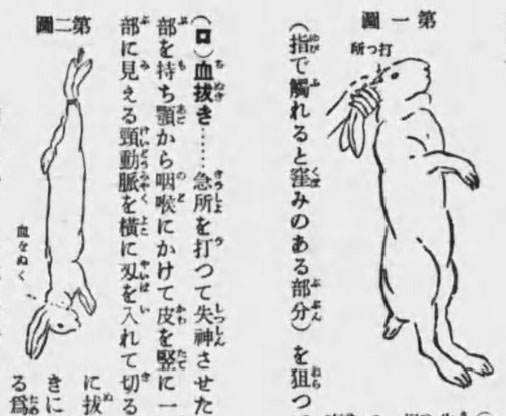 第一圖
打つ所
（指で觸れると窪みのある部分）を狙つ
（ロ）血拔き……急所を打つて失神させた
部を持ち顎から咽喉にかけて皮を竪に一
部に見える頸動脈を橫に刄を入れて切る
第二圖
血をぬく
に拔
きに
る爲